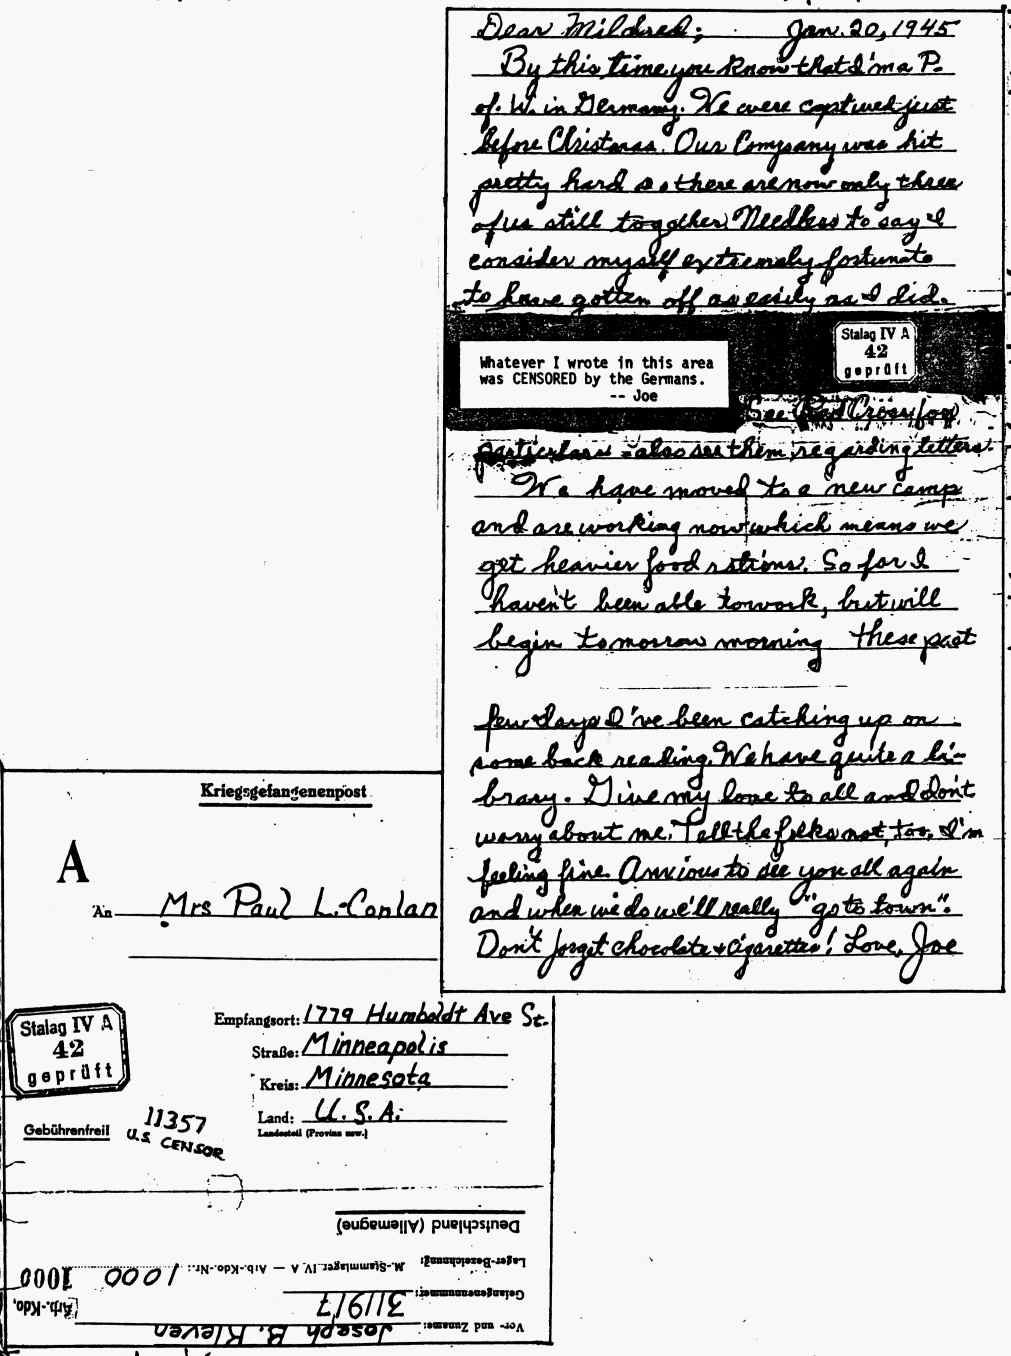 Dear Mildred; Jan. 20, 1945
By this time you know that I'm a P.
of. W. in Germany. We were captured just
before Christmas. Our Company was hit
pretty hard so there are now only three
of us still together. Needless to say I
consider myself extremely fortunate
to have gotten off as easily as I did.
Stalag IV A
42
geprüft
Whatever I wrote in this area
was CENSORED by the Germans.
-- Joe
See Red Cross for
particulars - also see them regarding letters.
We have moved to a new camp
and are working now which means we
get heavier food rations. So far I
haven't been able to work, but will
begin tomorrow morning these past
few days I've been catching up on
some back reading. We have quite a li-
brary. Give my love to all and don't
worry about me. Tell the folks not, too. I'm
feeling fine. Anxious to see you all again
and when we do we'll really "go to town".
Don't forget chocolate + cigarettes! Love, Joe
Kriegsgefangenenpost
A
An Mrs Paul L. Conlan
Empfangsort: 1779 Humboldt Ave St.
Straße: Minneapolis
Kreis: Minnesota
Land: U.S.A.
Landesteil (Provinz usw.)
Stalag IV A
42
geprüft
Gebührenfrei!
11357
U.S. CENSOR
Deutschland (Allemagne)
Lager-Bezeichnung: M.-Stammlager IV A — Arb.-Kdo.-Nr.: 1000
Gefangenennummer: 311917
Vor- und Zuname: Joseph B. Kleven
Arb.-Kdo, 1000